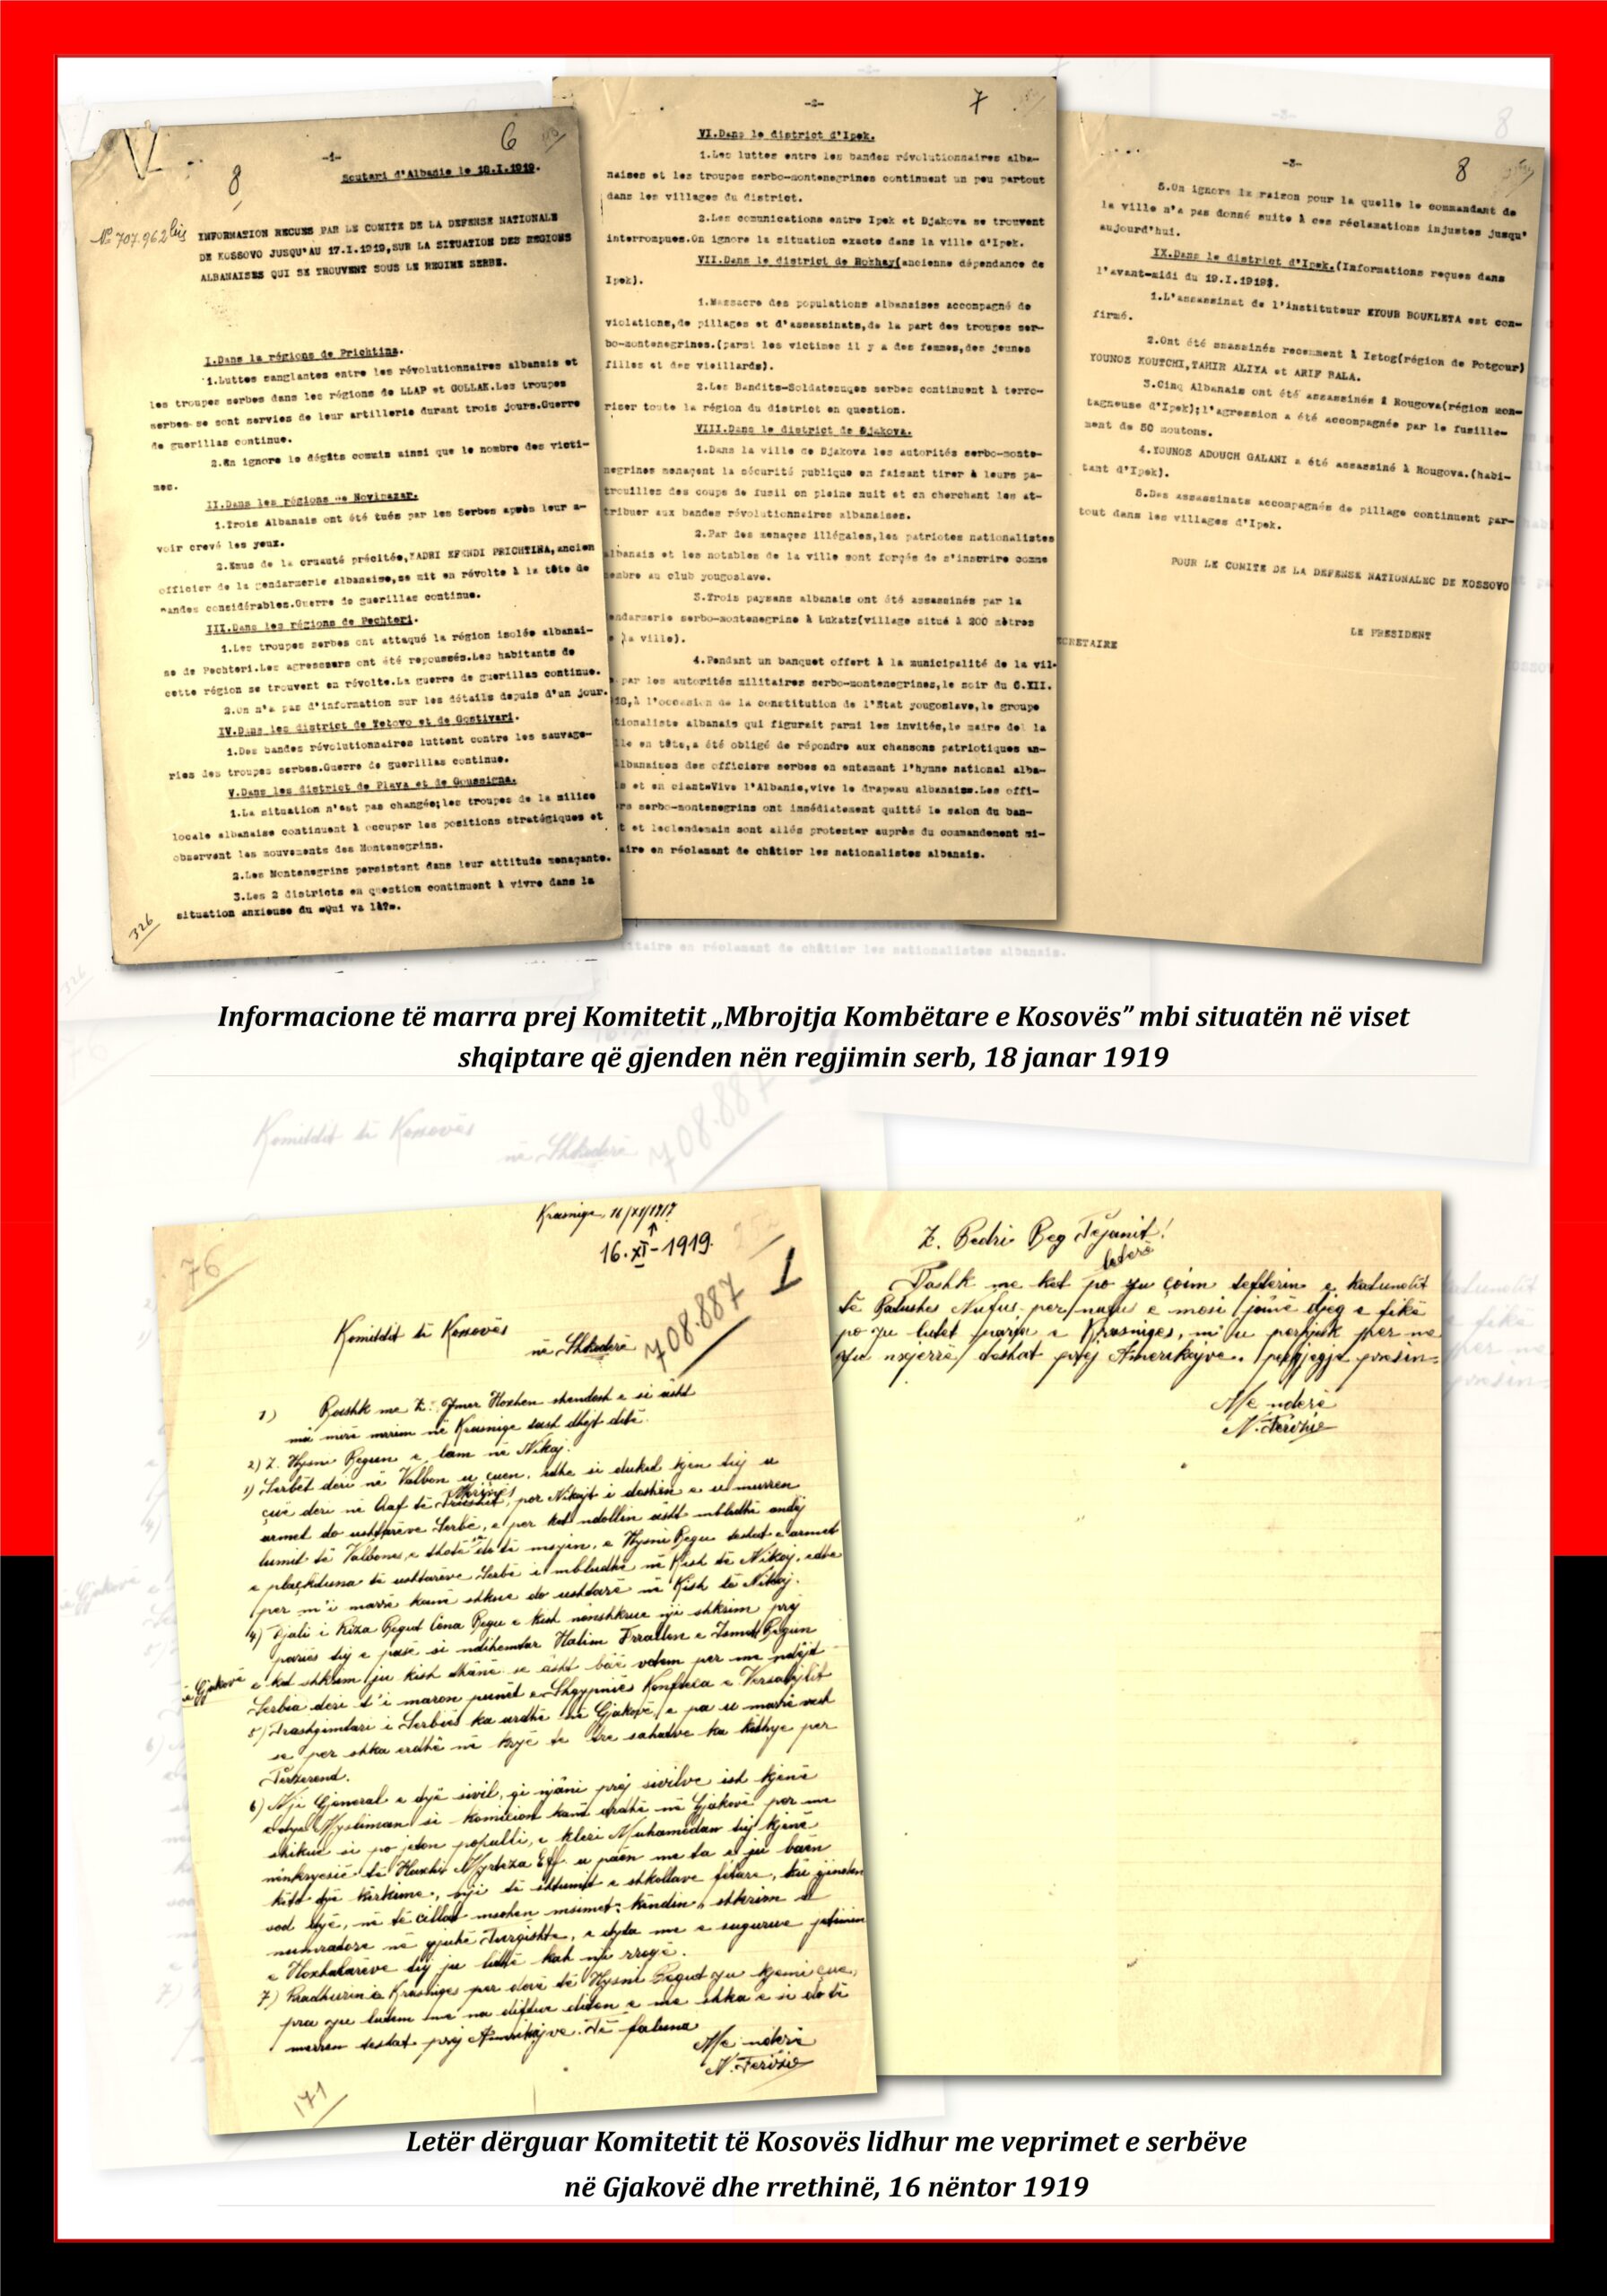 -1-
6
8
Scutari d'Albanie le 18.I.1919.
No 707.962 bis
INFORMATION RECUES PAR LE COMITE DE LA DEFENSE NATIONALE
DE KOSSOVO JUSQU'AU 17.I.1919,SUR LA SITUATION DES REGIONS
ALBANAISES QUI SE TROUVENT SOUS LE REGIME SERBE.
I.Dans la régions de Prichtina.
1.Luttes sanglantes entre les révolutionnaires albanais et
les troupes serbes dans les régions de LLAP et GOLLAK.Les troupes
serbes se sont servies de leur artillerie durant trois jours.Guerre
de guerillas continue.
2.On ignore le dégâts commis ainsi que le nombre des victi-
mes.
II.Dans les régions de Novipazar.
1.Trois Albanais ont été tués par les Serbes après leur a-
voir crevé les yeux.
2.Emus de la cruauté précitée,KADRI EFENDI PRICHTINA,ancien
officier de la gendarmerie albanaise,se mit en révolte à la tête de
bandes considérables.Guerre de guerillas continue.
III.Dans les régions de Pechteri.
1.Les troupes serbes ont attaqué la région isolée albanai-
se de Pechteri.Les agresseurs ont été repoussés.Les habitants de
cette région se trouvent en révolte.La guerre de guerillas continue.
2.On n'a pas d'information sur les détails depuis d'un jour.
IV.Dans les district de Tetovo et de Gostivari.
1.Des bandes révolutionnaires luttent contre les sauvage-
ries des troupes serbes.Guerre de guerillas continue.
V.Dans les district de Plava et de Goussigna.
1.La situation n'est pas changée;les troupes de la milice
locale albanaise continuent à occuper les positions stratégiques et
observent les mouvements des Montenegrins.
2.Les Montenegrins persistent dans leur attitude menaçante.
3.Les 2 districts en question continuent à vivre dans la
situation anxieuse du «Qui va là?».
326
-2-
7
VI.Dans le district d'Ipek.
1.Les luttes entre les bandes révolutionnaires alba-
naises et les troupes serbo-montenegrines continuent un peu partout
dans les villages du district.
2.Les comunications entre Ipek et Djakova se trouvent
interrompues.On ignore la situation exacte dans la ville d'Ipek.
VII.Dans le district de Rozhay(ancienne dépendance de
Ipek).
1.Massacre des populations albanaises accompagné de
violations,de pillages et d'assassinats,de la part des troupes ser-
bo-montenegrines.(parmi les victimes il y a des femmes,des jeunes
filles et des vieillards).
2.Les Bandits-Soldatesuqes serbes continuent à terro-
riser toute la région du district en question.
VIII.Dans le district de Djakova.
1.Dans la ville de Djakova les autorités serbo-monte-
negrines menaçent la sécurité publique en faisant tirer à leurs pa-
trouilles des coups de fusil en pleine nuit et en cherchant les at-
tribuer aux bandes révolutionnaires albanaises.
2.Par des menaçes illégales,les patriotes nationalistes
albanais et les notables de la ville sont forçés de s'inscrire comme
membre au club yougoslave.
3.Trois paysans albanais ont été assassinés par la
endarmerie serbo-montenegrine à Lukatz(village situé à 200 mètres
la ville).
4.Pendant un banquet offert à la municipalité de la vil-
par les autorités militaires serbo-montenegrines,le soir du 6.XII.
18,à l'occasion de la constitution de l'Etat yougoslave,le groupe
tionaliste albanais qui figurait parmi les invités,le maire del la
lle en tête,a été obligé de répondre aux chansons patriotiques an-
albanaises des officiers serbes en entamant l'hymne national alba-
s et en cianteVive l'Albanie,vive le drapeau albanaiss.Les offi-
rs serbo-montenegrins ont immédiatement quitté le salon du ban-
t et leclendemain sont allés protester auprès du commandement mi-
aire en réclamant de châtier les nationalistes albanais.
-3-
8
5.On ignore la raison pour la quelle le commandant de
la ville n'a pas donné suite à ces réclamations injustes jusqu'
aujourd'hui.
IX.Dans le district d'Ipek.(Informations reçues dans
l'avant-midi du 19.I.1919$.
1.L'assassinat de l'instituteur EYOUB BOUKLETA est con-
firmé.
2.Ont été assassinés recemment à Istog(région de Potgour)
YOUNOZ KOUTCHI,TAHIR ALIYA et ARIF BALA.
3.Cinq Albanais ont été assassinés à Rougova(région mon-
tagneuse d'Ipek);l'agression a été accompagnée par le fusille-
ment de 50 moutons.
4.YOUNOS ADOUCH GALANI a été assassiné à Rougova.(habi-
tant d'Ipek).
5.Des assassinats accompagnés de pillage continuent par-
tout dans les villages d'Ipek.
POUR LE COMITE DE LA DEFENSE NATIONALEC DE KOSSOVO
CRETAIRE
LE PRESIDENT
Informacione të marra prej Komitetit „Mbrojtja Kombëtare e Kosovës” mbi situatën në viset
shqiptare që gjenden nën regjimin serb, 18 janar 1919
Krasnige, 16/XI/1919
16.XI-1919.
76
708.887
Komiteit të Kosovës
në Shkodër
1) Bashk me Z. Ymer Hoxhen shendosh e si âsht
mâ mirë mrrim në Krasnige dhjet ditë.
2) Z. Hysni Begun e lam në Nikaj.
3) Serbët deri në Valbon u çuen, edhe si duket kjen
çue deri në Qaf të por Nikajt i deshën e u murren
armet do ushtarëve Serbë, e per ket ndollin âsht mbledhë andej
lumit të Valbones, e thotë do të msyin, e Hysni Begu teshat e armet
e plaçkduna të ushtarëve Serbë i mbledhë në Kish të Nikaj, edhe
per m'i marrë kanë shkue do ushtarë në Kish të Nikaj.
4) Djali i Riza Begut Qena Begu e kish nënshkrue nji shkrim prej
paries tij e pasë si ndihmtar Halim e Begun
në Gjakovë e ket shkrim ju kish thânë se âsht bâë vetem per me ndêjt
Serbia deri t'i maron punët e Shqypniës Konfreca e Versajlit
5) Trashigimtari i Serbiës ka ardhë në Gjakovë, e pa u marrë vesh
se per shka erdhë në krye te tre sahatve ka këthye per
Ferizevend.
6) Nji Gjeneral e dyë sivil, qi njâni prej sivilve ish kjenë
Mysliman si komision kanë ardhë në Gjakovë per me
shikue si po jeton populli, e kleri Muhamedan tij kjenë
nënkryesië të Hoxhës Myrteza Eff. u pâën me ta e ju bâën
këto dyë kërkime, nji të shtumit e shkollave fetare, ku gjinden
vod dyë, në të cillat msohen msimet: këndim, shkrim e
numratore në gjuhë Turqishte, e dyta me e sigurue jetimin
e Hoxhalarëve tij ju kah nji rrogë.
7) Bradhurin e Krasniges per dorë të Hysni Begut ju kjemi çue,
pra ju lutem me na diftue diten e me shka e si do të
merren teshat prej Amerikajve. Të faluna
Me nderë
N. Ferizis
171
Z. Bedri Beg Pejanit!
letër
Bashk me ket po ju çoim defterin e katundit
të Batushes Nufus per nufus e mosi jânë djeg e fikë
po ju lutet parija e Krasniges, mi u perpjek per me
ju nxjerrë teshat prej Amerikajve. pergjegje presin.
Me nderë
N. Ferizis
Letër dërguar Komitetit të Kosovës lidhur me veprimet e serbëve
në Gjakovë dhe rrethinë, 16 nëntor 1919